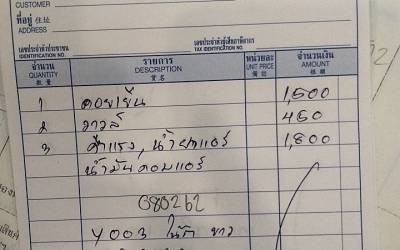 CUSTOMER
ที่อยู่ 住址
ADDRESS
เลขประจำตัวประชาชน
IDENTIFICATION NO.
เลขประจำตัวผู้เสียภาษีอากร
TAX IDENTIFICATION NO.
จำนวน รายการ หน่วยละ จำนวนเงิน
QUANTITY DESCRIPTION UNIT PRICE AMOUNT
1 คอยเย็น 1,500
2 วาวล์ 450
3 ค่าแรง, น้ำยาแอร์ 1,800
น้ำมันคอมแอร์
080262